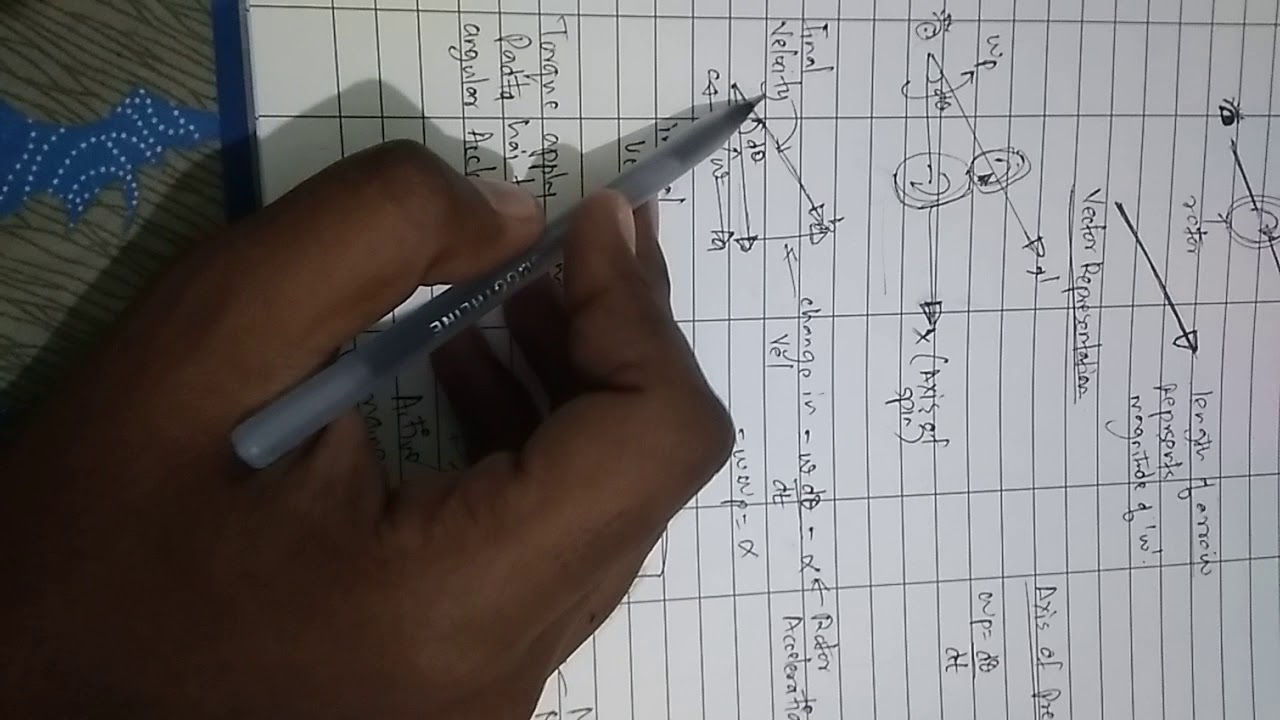 rotor
length of arrow
represents
magnitude of 'w'.
Vector Representation
Axis of Pre
wp = dθ
dt
wp
dθ
x'
x (Axis of
spin)
Final
Velocity
dθ
w
change in = w dθ = α ← Rotor
Vel dt Acceleratio
= w wp = α
Torque apply
Padta hai
angular Accl
Active
SMOOTHLINE